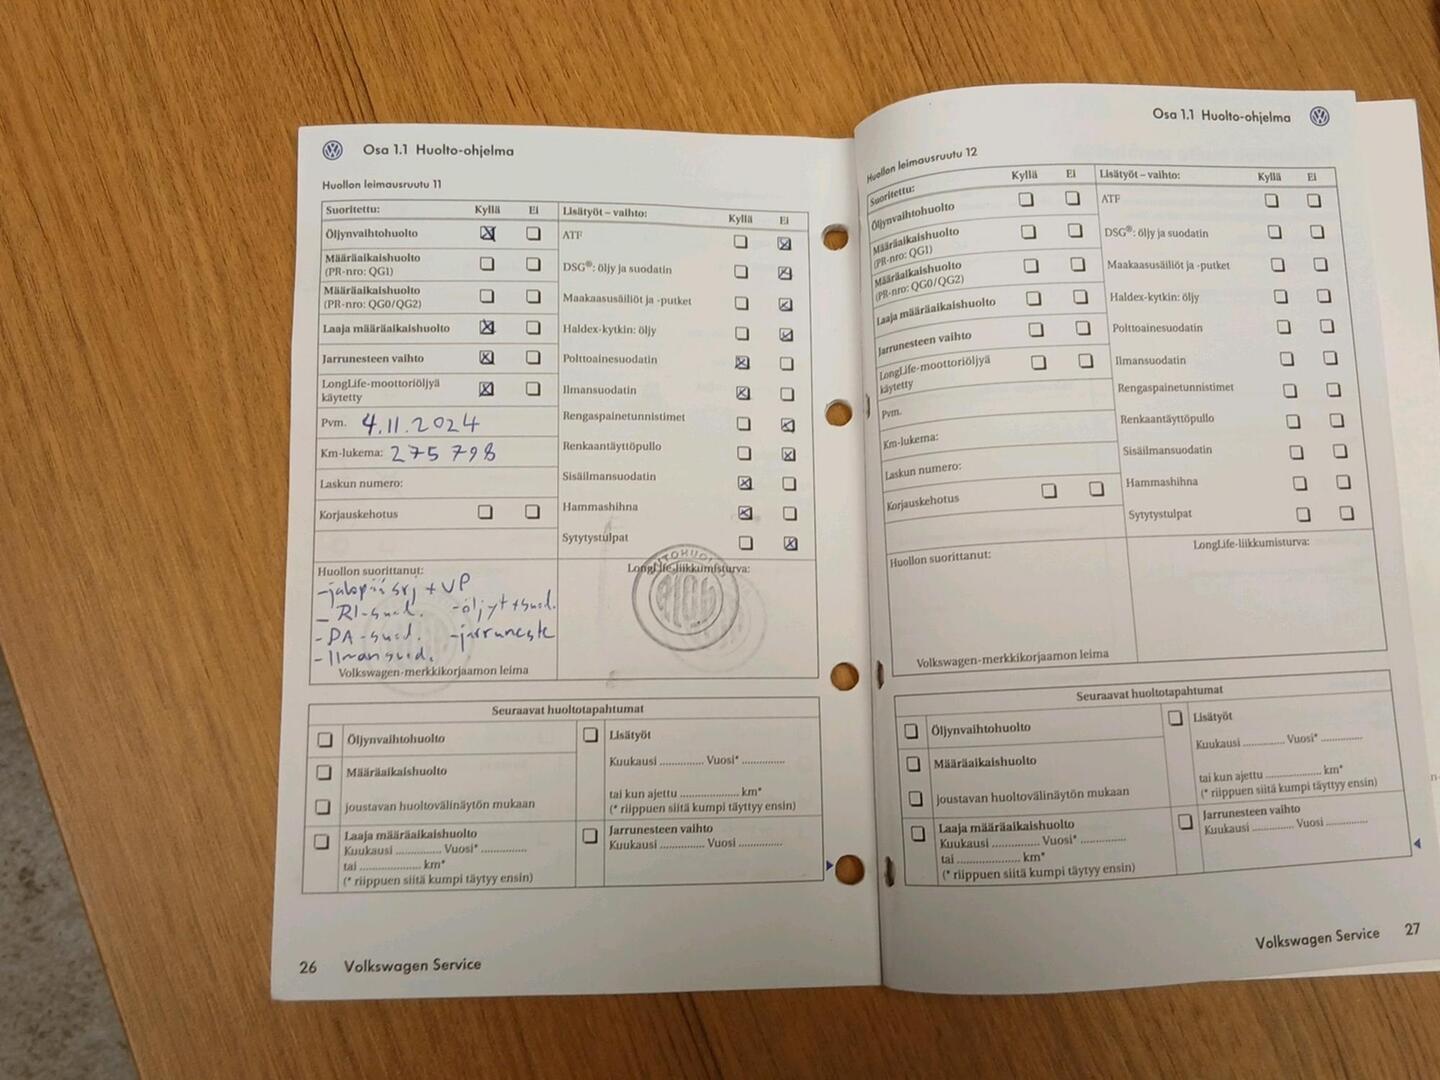 Osa 1.1 Huolto-ohjelma
Huollon leimausruutu 11
Suoritettu: Kyllä Ei
Öljynvaihtohuolto
Määräaikaishuolto
(PR-nro: QG1)
Määräaikaishuolto
(PR-nro: QG0/QG2)
Laaja määräaikaishuolto
Jarrunesteen vaihto
LongLife-moottoriöljyä
käytetty
Pvm. 4.11.2024
Km-lukema: 275 798
Laskun numero:
Korjauskehotus
Lisätyöt – vaihto: Kyllä Ei
ATF
DSG®: öljy ja suodatin
Maakaasusäiliöt ja -putket
Haldex-kytkin: öljy
Polttoainesuodatin
Ilmansuodatin
Rengaspainetunnistimet
Renkaantäyttöpullo
Sisäilmansuodatin
Hammashihna
Sytytystulpat
Huollon suorittanut:
-jakopää srj + VP
- RI-suod. -öljyt+suod.
- PA-suod. -jarruneste
- Ilmansuod.
Volkswagen-merkkikorjaamon leima
LongLife-liikkumisturva:
Seuraavat huoltotapahtumat
Öljynvaihtohuolto
Määräaikaishuolto
joustavan huoltovälinäytön mukaan
Laaja määräaikaishuolto
Kuukausi .............. Vuosi* ..............
tai .................... km*
(* riippuen siitä kumpi täytyy ensin)
Lisätyöt
Kuukausi .............. Vuosi* ..............
tai kun ajettu .................... km*
(* riippuen siitä kumpi täytyy ensin)
Jarrunesteen vaihto
Kuukausi .............. Vuosi ..............
26 Volkswagen Service
Osa 1.1 Huolto-ohjelma
Huollon leimausruutu 12
Suoritettu: Kyllä Ei
Öljynvaihtohuolto
Määräaikaishuolto
(PR-nro: QG1)
Määräaikaishuolto
(PR-nro: QG0/QG2)
Laaja määräaikaishuolto
Jarrunesteen vaihto
LongLife-moottoriöljyä
käytetty
Pvm.
Km-lukema:
Laskun numero:
Korjauskehotus
Lisätyöt – vaihto: Kyllä Ei
ATF
DSG®: öljy ja suodatin
Maakaasusäiliöt ja -putket
Haldex-kytkin: öljy
Polttoainesuodatin
Ilmansuodatin
Rengaspainetunnistimet
Renkaantäyttöpullo
Sisäilmansuodatin
Hammashihna
Sytytystulpat
Huollon suorittanut:
Volkswagen-merkkikorjaamon leima
LongLife-liikkumisturva:
Seuraavat huoltotapahtumat
Öljynvaihtohuolto
Määräaikaishuolto
joustavan huoltovälinäytön mukaan
Laaja määräaikaishuolto
Kuukausi .............. Vuosi* ..............
tai .................... km*
(* riippuen siitä kumpi täytyy ensin)
Lisätyöt
Kuukausi .............. Vuosi* ..............
tai kun ajettu .................... km*
(* riippuen siitä kumpi täytyy ensin)
Jarrunesteen vaihto
Kuukausi .............. Vuosi ..............
Volkswagen Service 27